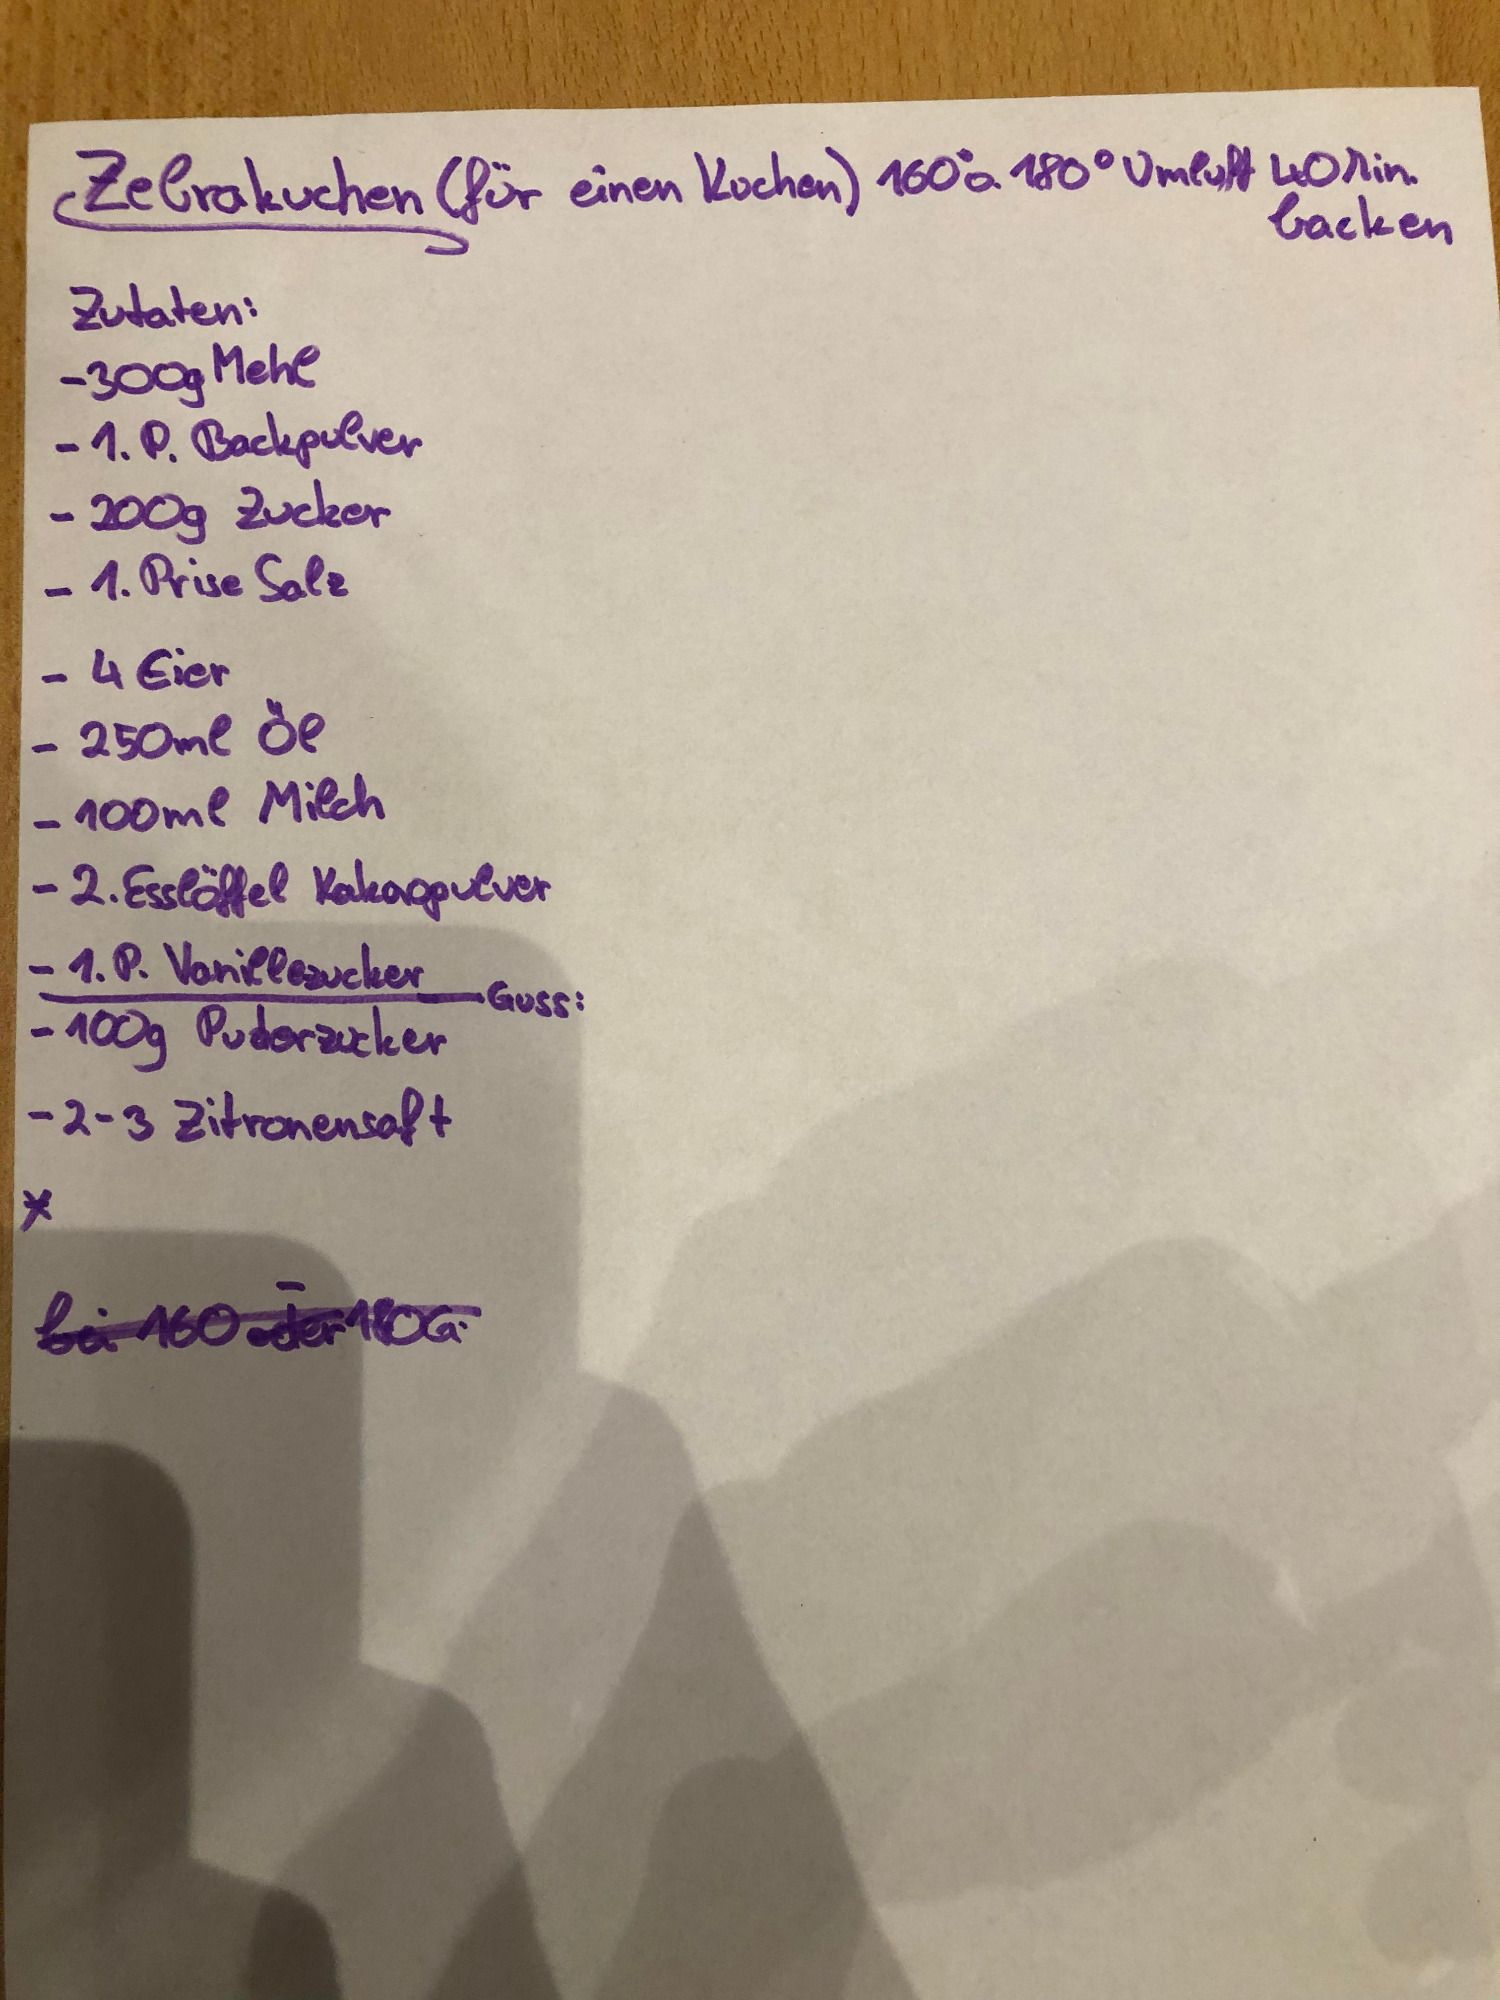 Zebrakuchen (für einen Kuchen) 160° o. 180° Umluft 40 Min.
backen
Zutaten:
-300g Mehl
- 1. P. Backpulver
- 200g Zucker
- 1. Prise Salz
- 4 Eier
- 250ml Öl
- 100ml Milch
- 2. Esslöffel Kakaopulver
- 1. P. Vanillezucker
Guss:
- 100g Puderzucker
- 2-3 Zitronensaft
*
bei 160 oder 180G.